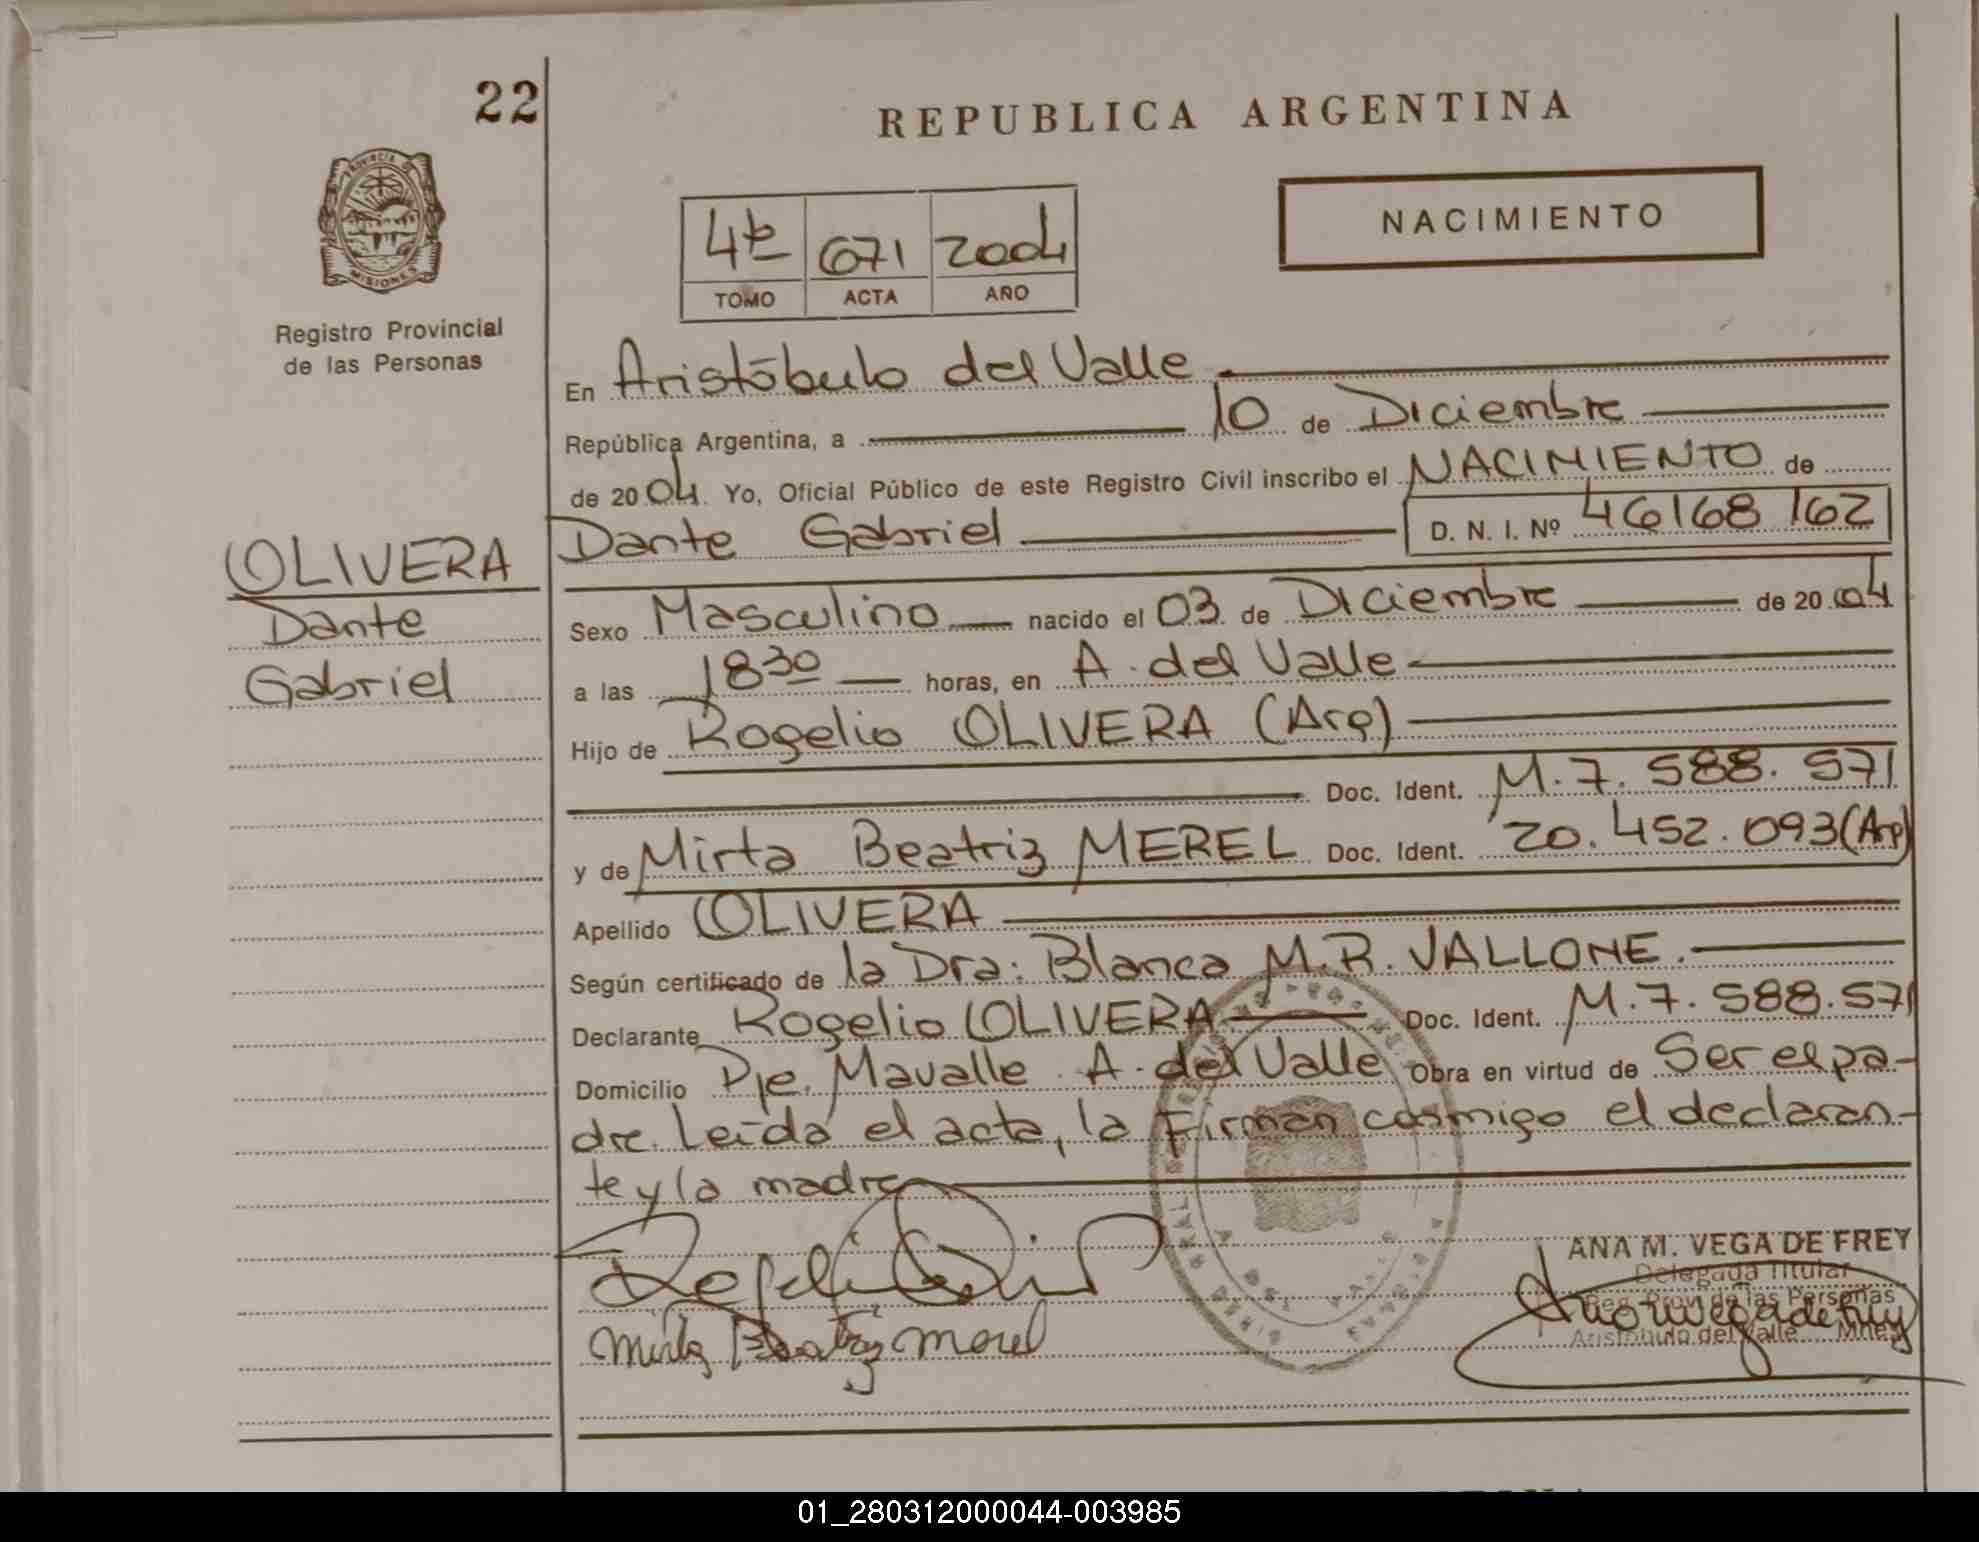 22
REPUBLICA ARGENTINA
PROVINCIA DE
MISIONES
Registro Provincial
de las Personas
NACIMIENTO
4to 671 2004
TOMO ACTA AÑO
En Aristóbulo del Valle
República Argentina, a 10 de Diciembre
de 2004. Yo, Oficial Público de este Registro Civil inscribo el NACIMIENTO de
OLIVERA
Dante
Gabriel
Dante Gabriel D. N. I. Nº 46168162
Sexo Masculino nacido el 03 de Diciembre de 2004
a las 18 30 horas, en A. del Valle
Hijo de Rogelio OLIVERA (Arg)
Doc. Ident. M.7.588.571
y de Mirta Beatriz MEREL Doc. Ident. 20.452.093 (Arg)
Apellido OLIVERA
Según certificado de la Dra: Blanca M.R. VALLONE.
Declarante Rogelio OLIVERA Doc. Ident. M.7.588.571
Domicilio Pje. Mavalle A. del Valle Obra en virtud de Ser el pa-
dre. Leída el acta, la Firman conmigo el declaran-
te y la madre
Mirta Beatriz Merel
ANA M. VEGA DE FREY
Delegada Titular
Reg. Prov. de las Personas
Aristóbulo del Valle Mnes
01_280312000044-003985